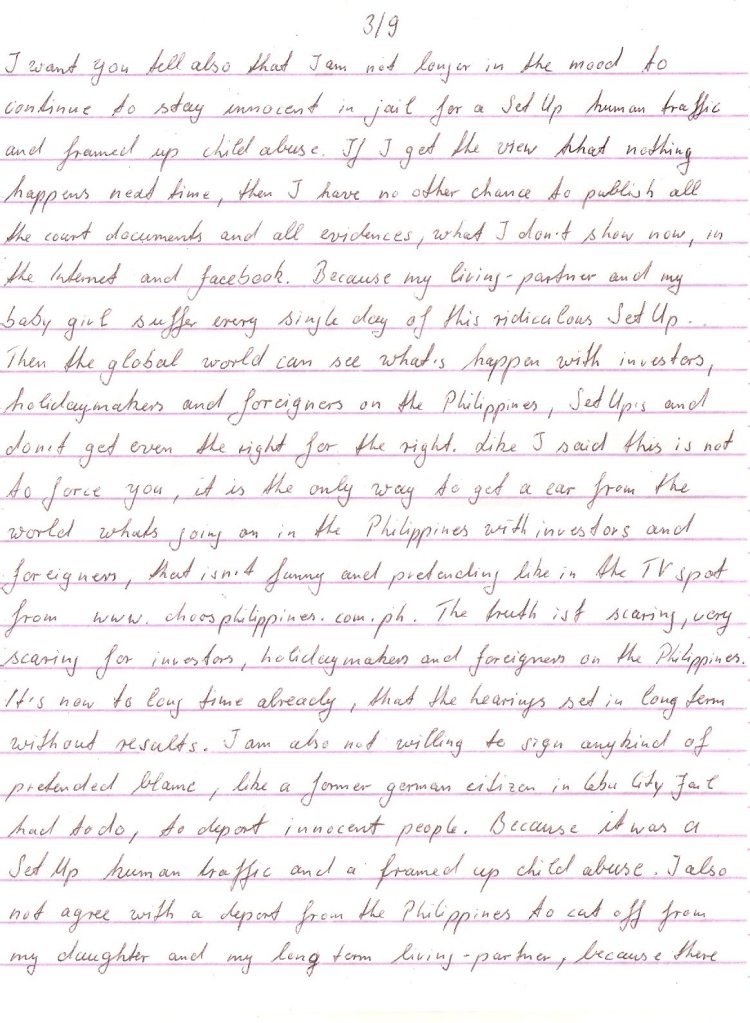 3/9
I want you tell also that I am not longer in the mood to
continue to stay innocent in jail for a Set Up human traffic
and framed up child abuse. If I get the view that nothing
happens next time, then I have no other chance to publish all
the court documents and all evidences, what I don't show now, in
the Internet and facebook. Because my living-partner and my
baby girl suffer every single day of this ridiculous Set Up.
Then the global world can see what's happen with investors,
holidaymakers and foreigners on the Philippines, Set Up's and
don't get even the right for the right. Like I said this is not
to force you, it is the only way to get a ear from the
world whats going on in the Philippines with investors and
foreigners, that isn't funny and pretending like in the TV spot
from www.choosphilippines.com.ph. The truth ist scaring, very
scaring for investors, holidaymakers and foreigners on the Philippines.
It's now to long time already, that the hearings set in long term
without results. I am also not willing to sign anykind of
pretended blame, like a former german citizen in Cebu City Jail
had todo, to deport innocent people. Because it was a
Set Up human traffic and a framed up child abuse. I also
not agree with a deport from the Philippines to cut off from
my daughter and my long term living-partner, because there